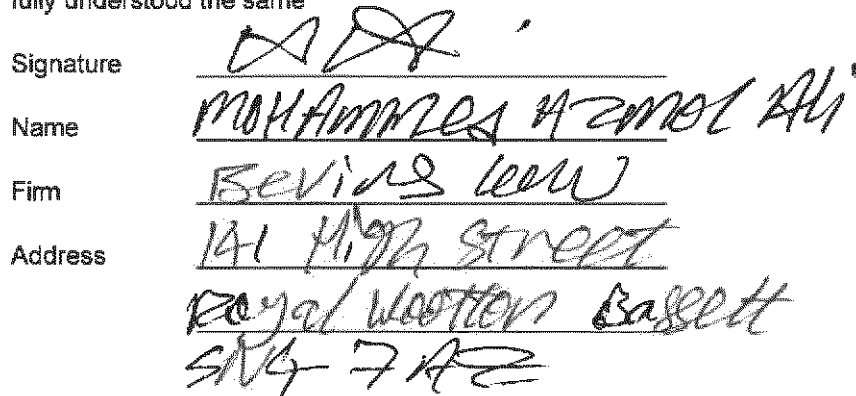 fully understood the same
Signature
Name Mohammed Azmol Ali
Firm Bevirs Law
Address 141 High Street
Royal Wootton Bassett
SN4 7AZ